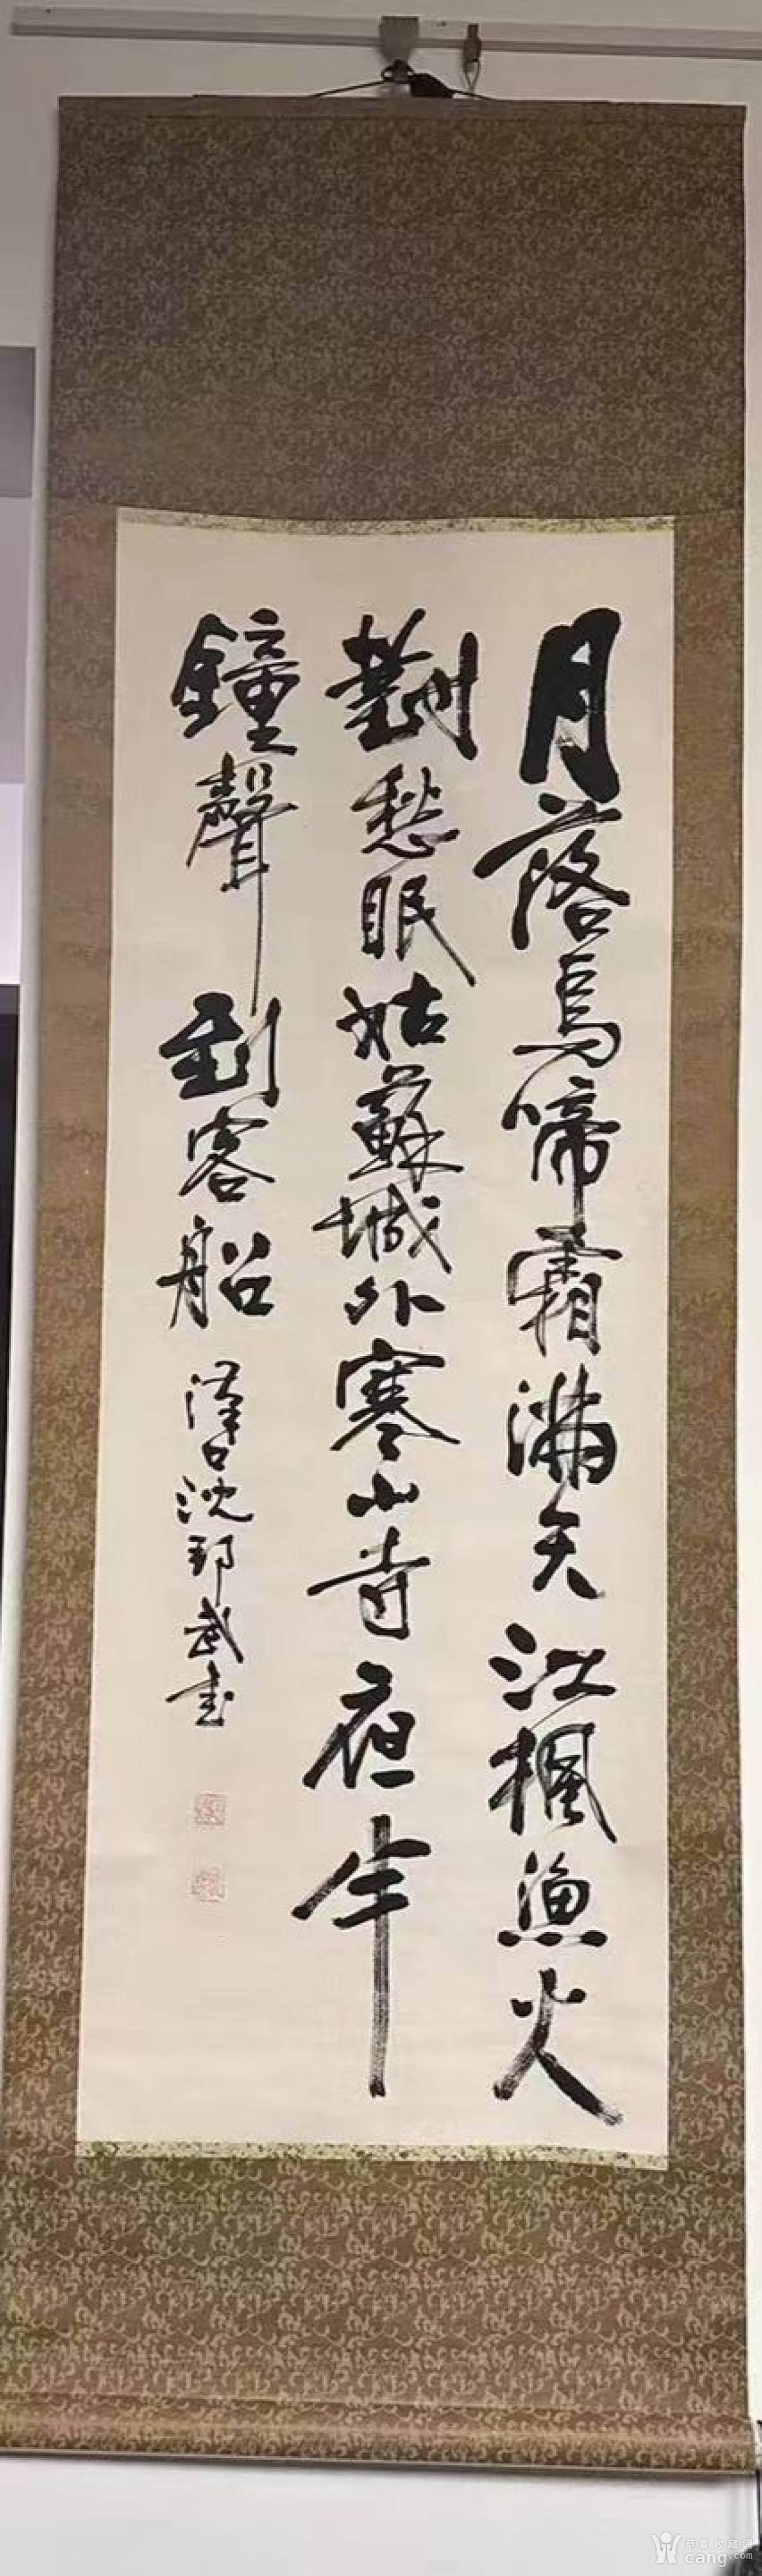 月落烏啼霜滿天江楓漁火
對愁眠姑蘇城外寒山寺夜半
鐘聲到客船
漢口沈邦武書
cang.com